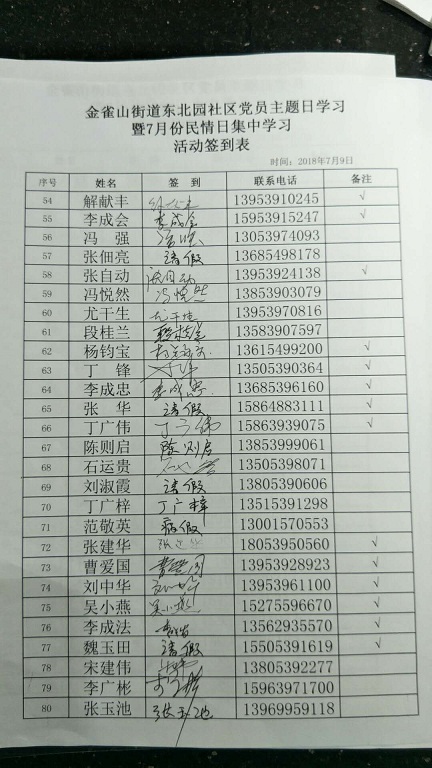 金雀山街道东北园社区党员主题日学习
暨7月份民情日集中学习
活动签到表
时间：2018年7月9日
序号 姓名 签 到 联系电话 备注
54 解献丰 13953910245 √
55 李成会 李成会 15953915247 √
56 冯 强 冯强 13053974093
57 张佃亮 请假 13685498178
58 张自动 张自动 13953924138 √
59 冯悦然 冯悦然 13853903079
60 尤干生 尤干生 13953970816
61 段桂兰 段桂兰 13583907597
62 杨钧宝 13615499200 √
63 丁 锋 13505390364 √
64 李成忠 李成忠 13685396160 √
65 张 华 请假 15864883111 √
66 丁广伟 丁广伟 15863939075 √
67 陈则启 陈则启 13853999061
68 石运贵 13505398071
69 刘淑霞 请假 13805390606
70 丁广梓 丁广梓 13515391298
71 范敬英 病假 13001570553
72 张建华 张建华 18053950560 √
73 曹爱国 曹爱国 13953928923 √
74 刘中华 13953961100 √
75 吴小燕 吴小燕 15275596670 √
76 李成法 13562935570 √
77 魏玉田 请假 15505391619 √
78 宋建伟 13805392277
79 李广彬 15963971700
80 张玉池 张玉池 13969959118